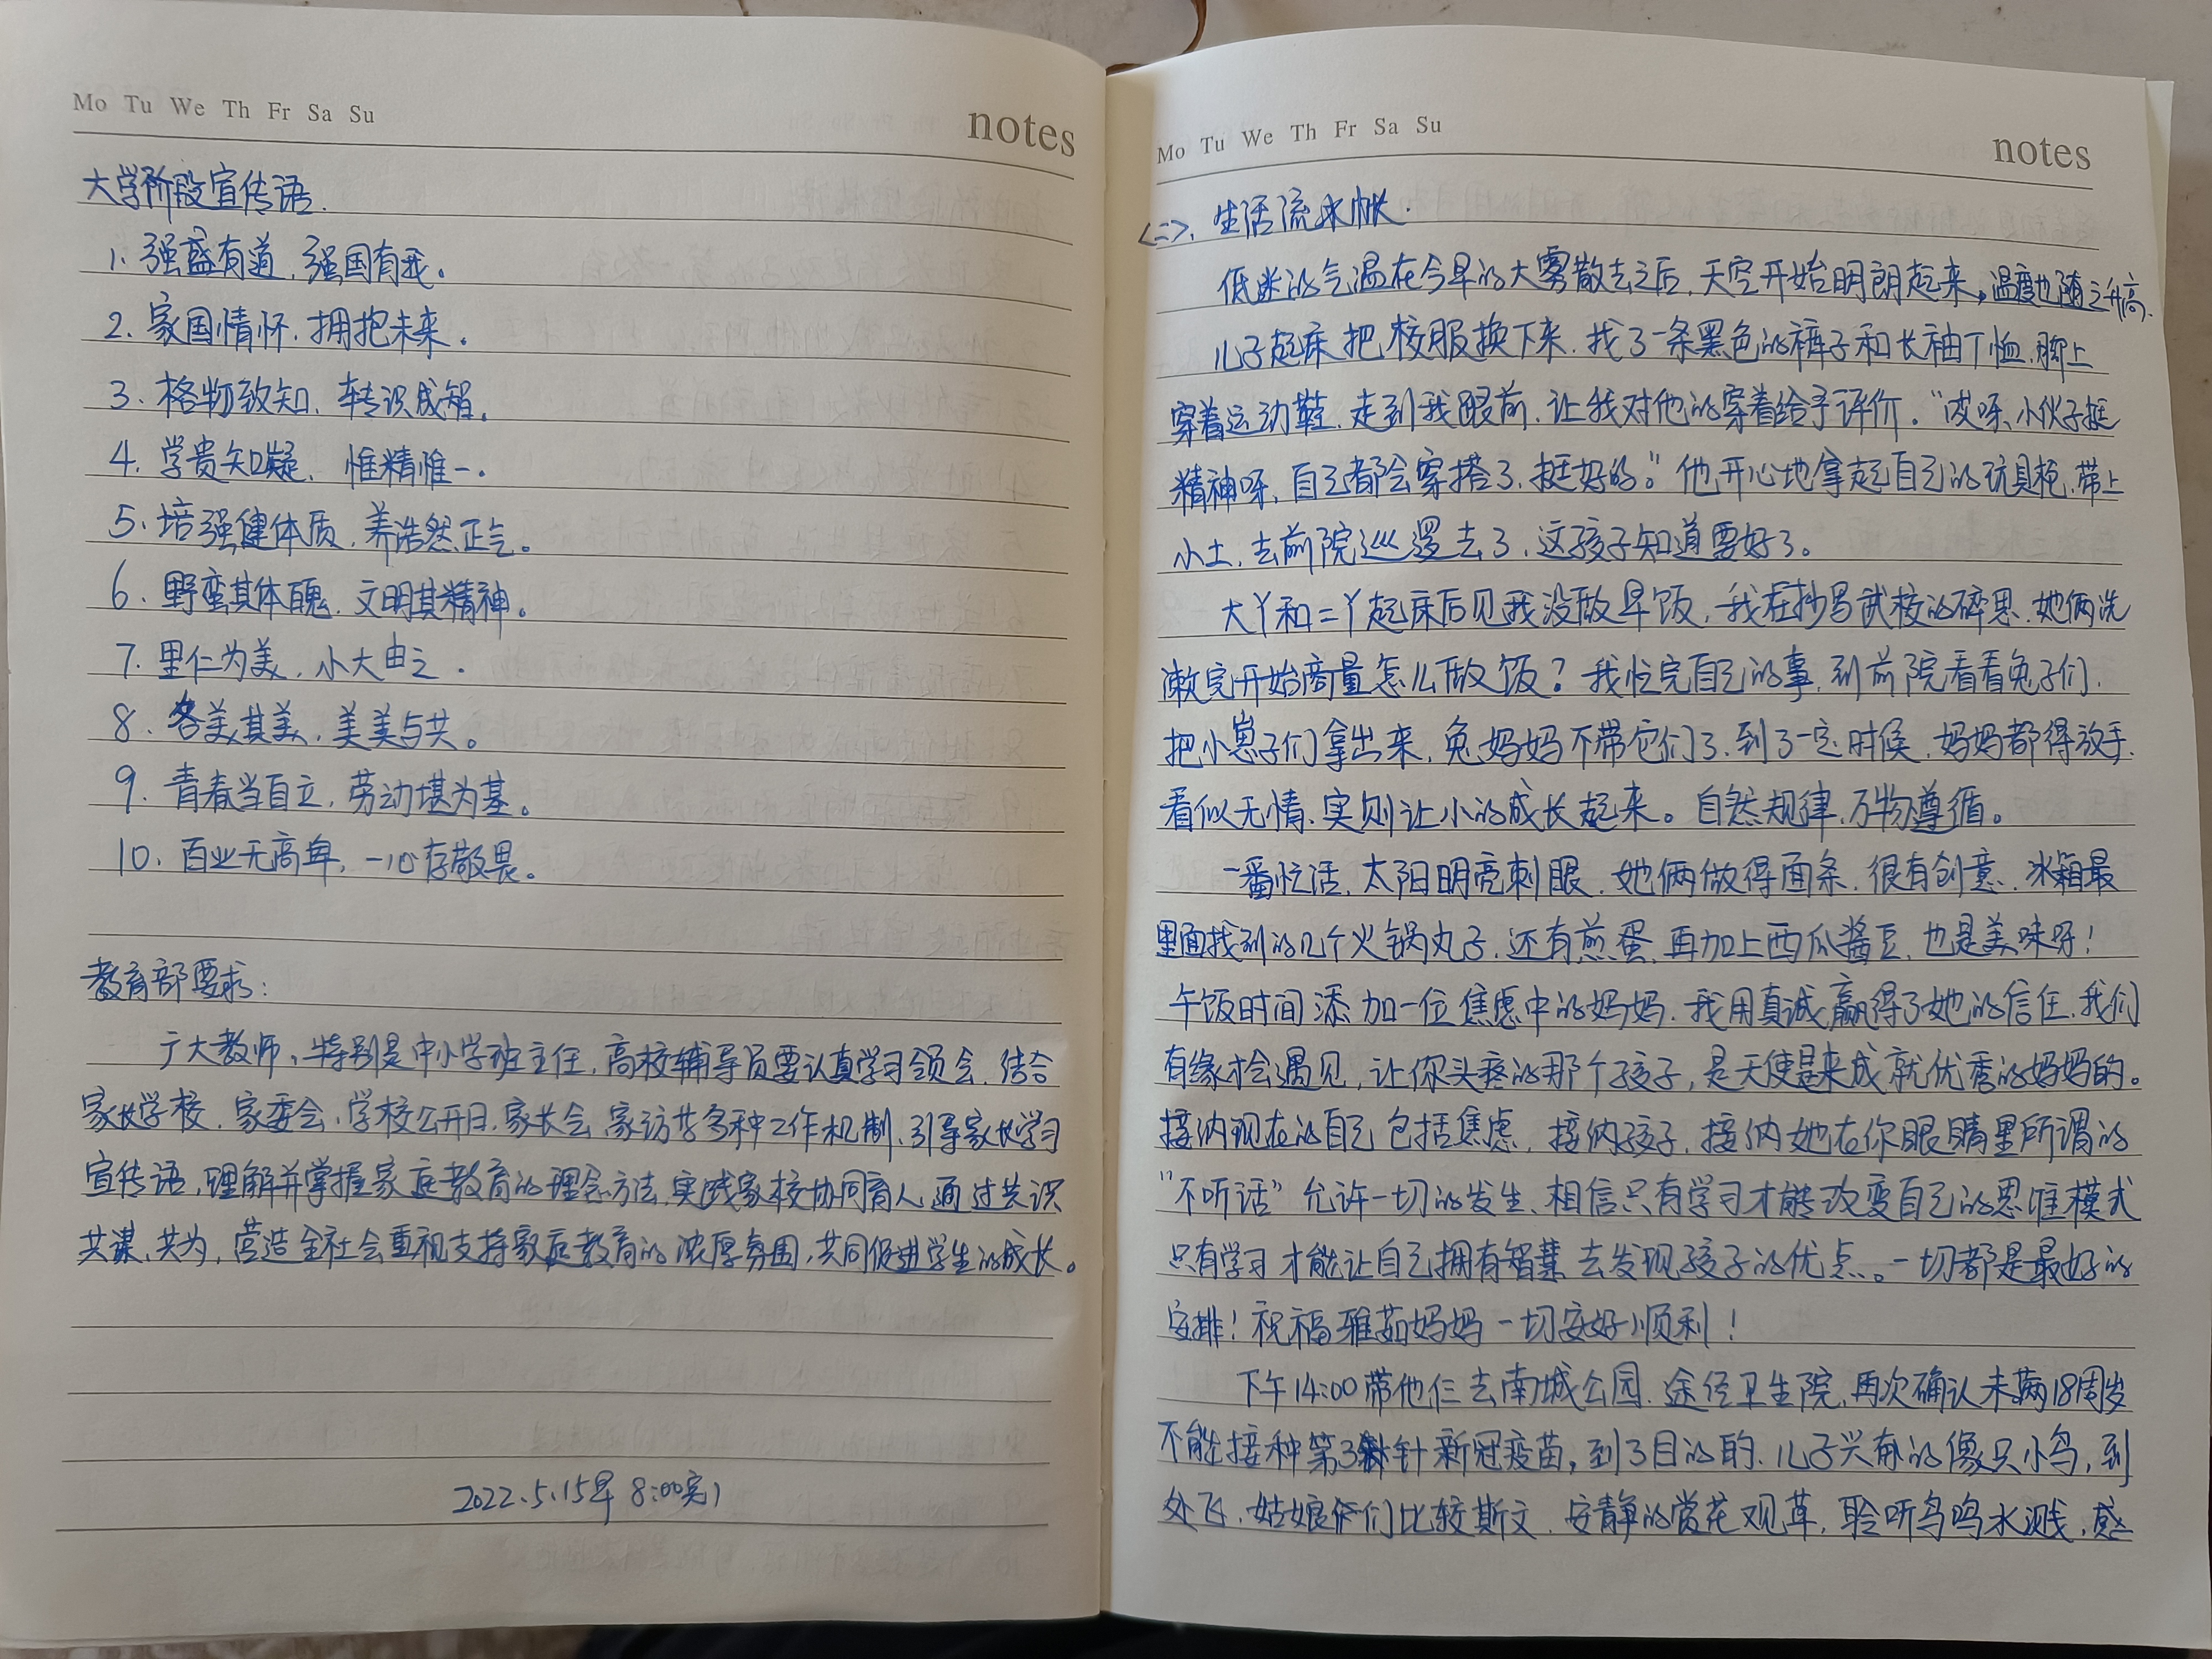 Mo Tu We Th Fr Sa Su
notes
大学阶段宣传语.
1. 强盛有道,强国有我。
2. 家国情怀,拥抱未来。
3. 格物致知,转识成智。
4. 学贵知疑,惟精惟一.
5. 培强健体质,养浩然正气。
6. 野蛮其体魄,文明其精神。
7. 里仁为美,小大由之.
8. 各美其美,美美与共。
9. 青春当自立,劳动堪为基。
10. 百业无高卑,一心存敬畏。
教育部要求:
广大教师、特别是中小学班主任,高校辅导员要认真学习领会,结合
家长学校,家委会,学校公开日,家长会,家访等多种工作机制,引导家长学习
宣传语,理解并掌握家庭教育的理念方法,实践家校协同育人,通过共识
共谋、共为,营造全社会重视支持家庭教育的浓厚氛围,共同促进学生的成长。
2022.5.15早 8:00完
Mo Tu We Th Fr Sa Su
notes
<二>. 生活流水帐.
低迷的气温在今早的大雾散去之后,天空开始明朗起来,温度也随之升高.
儿子起床把校服换下来,找了一条黑色的裤子和长袖T恤,脚上
穿着运动鞋,走到我跟前,让我对他的穿着给予评价。“哎呀,小伙子挺
精神呀,自己都会穿搭了,挺好的。”他开心地拿起自己的玩具枪,带上
小土,去前院巡逻去了,这孩子知道要好了。
大丫和二丫起床后见我没做早饭,我在抄写武校的碎思,她俩洗
漱完开始商量怎么做饭?我忙完自己的事,到前院看看兔子们,
把小崽子们拿出来,兔妈妈不带它们了,到了一定时候,妈妈都得放手,
看似无情,实则让小的成长起来。自然规律,万物遵循。
一番忙活,太阳明亮刺眼,她俩做得面条,很有创意,冰箱最
里面找到的几个火锅丸子,还有煎蛋,再加上西瓜酱豆,也是美味呀!
午饭时间添加一位焦虑中的妈妈,我用真诚赢得了她的信任,我们
有缘才会遇见,让你头疼的那个孩子,是天使是来成就优秀的妈妈的。
接纳现在的自己包括焦虑,接纳孩子,接纳她在你眼睛里所谓的
“不听话”允许一切的发生,相信只有学习才能改变自己的思维模式
只有学习才能让自己拥有智慧去发现孩子的优点。一切都是最好的
安排!祝福雅茹妈妈一切安好顺利!
下午14:00带他仨去南城公园,途径卫生院,再次确认未满18周岁
不能接种第3针新冠疫苗,到了目的的,儿子兴奋的像只小鸟,到
处飞,姑娘们比较斯文,安静的赏花观草,聆听鸟鸣水溅,感